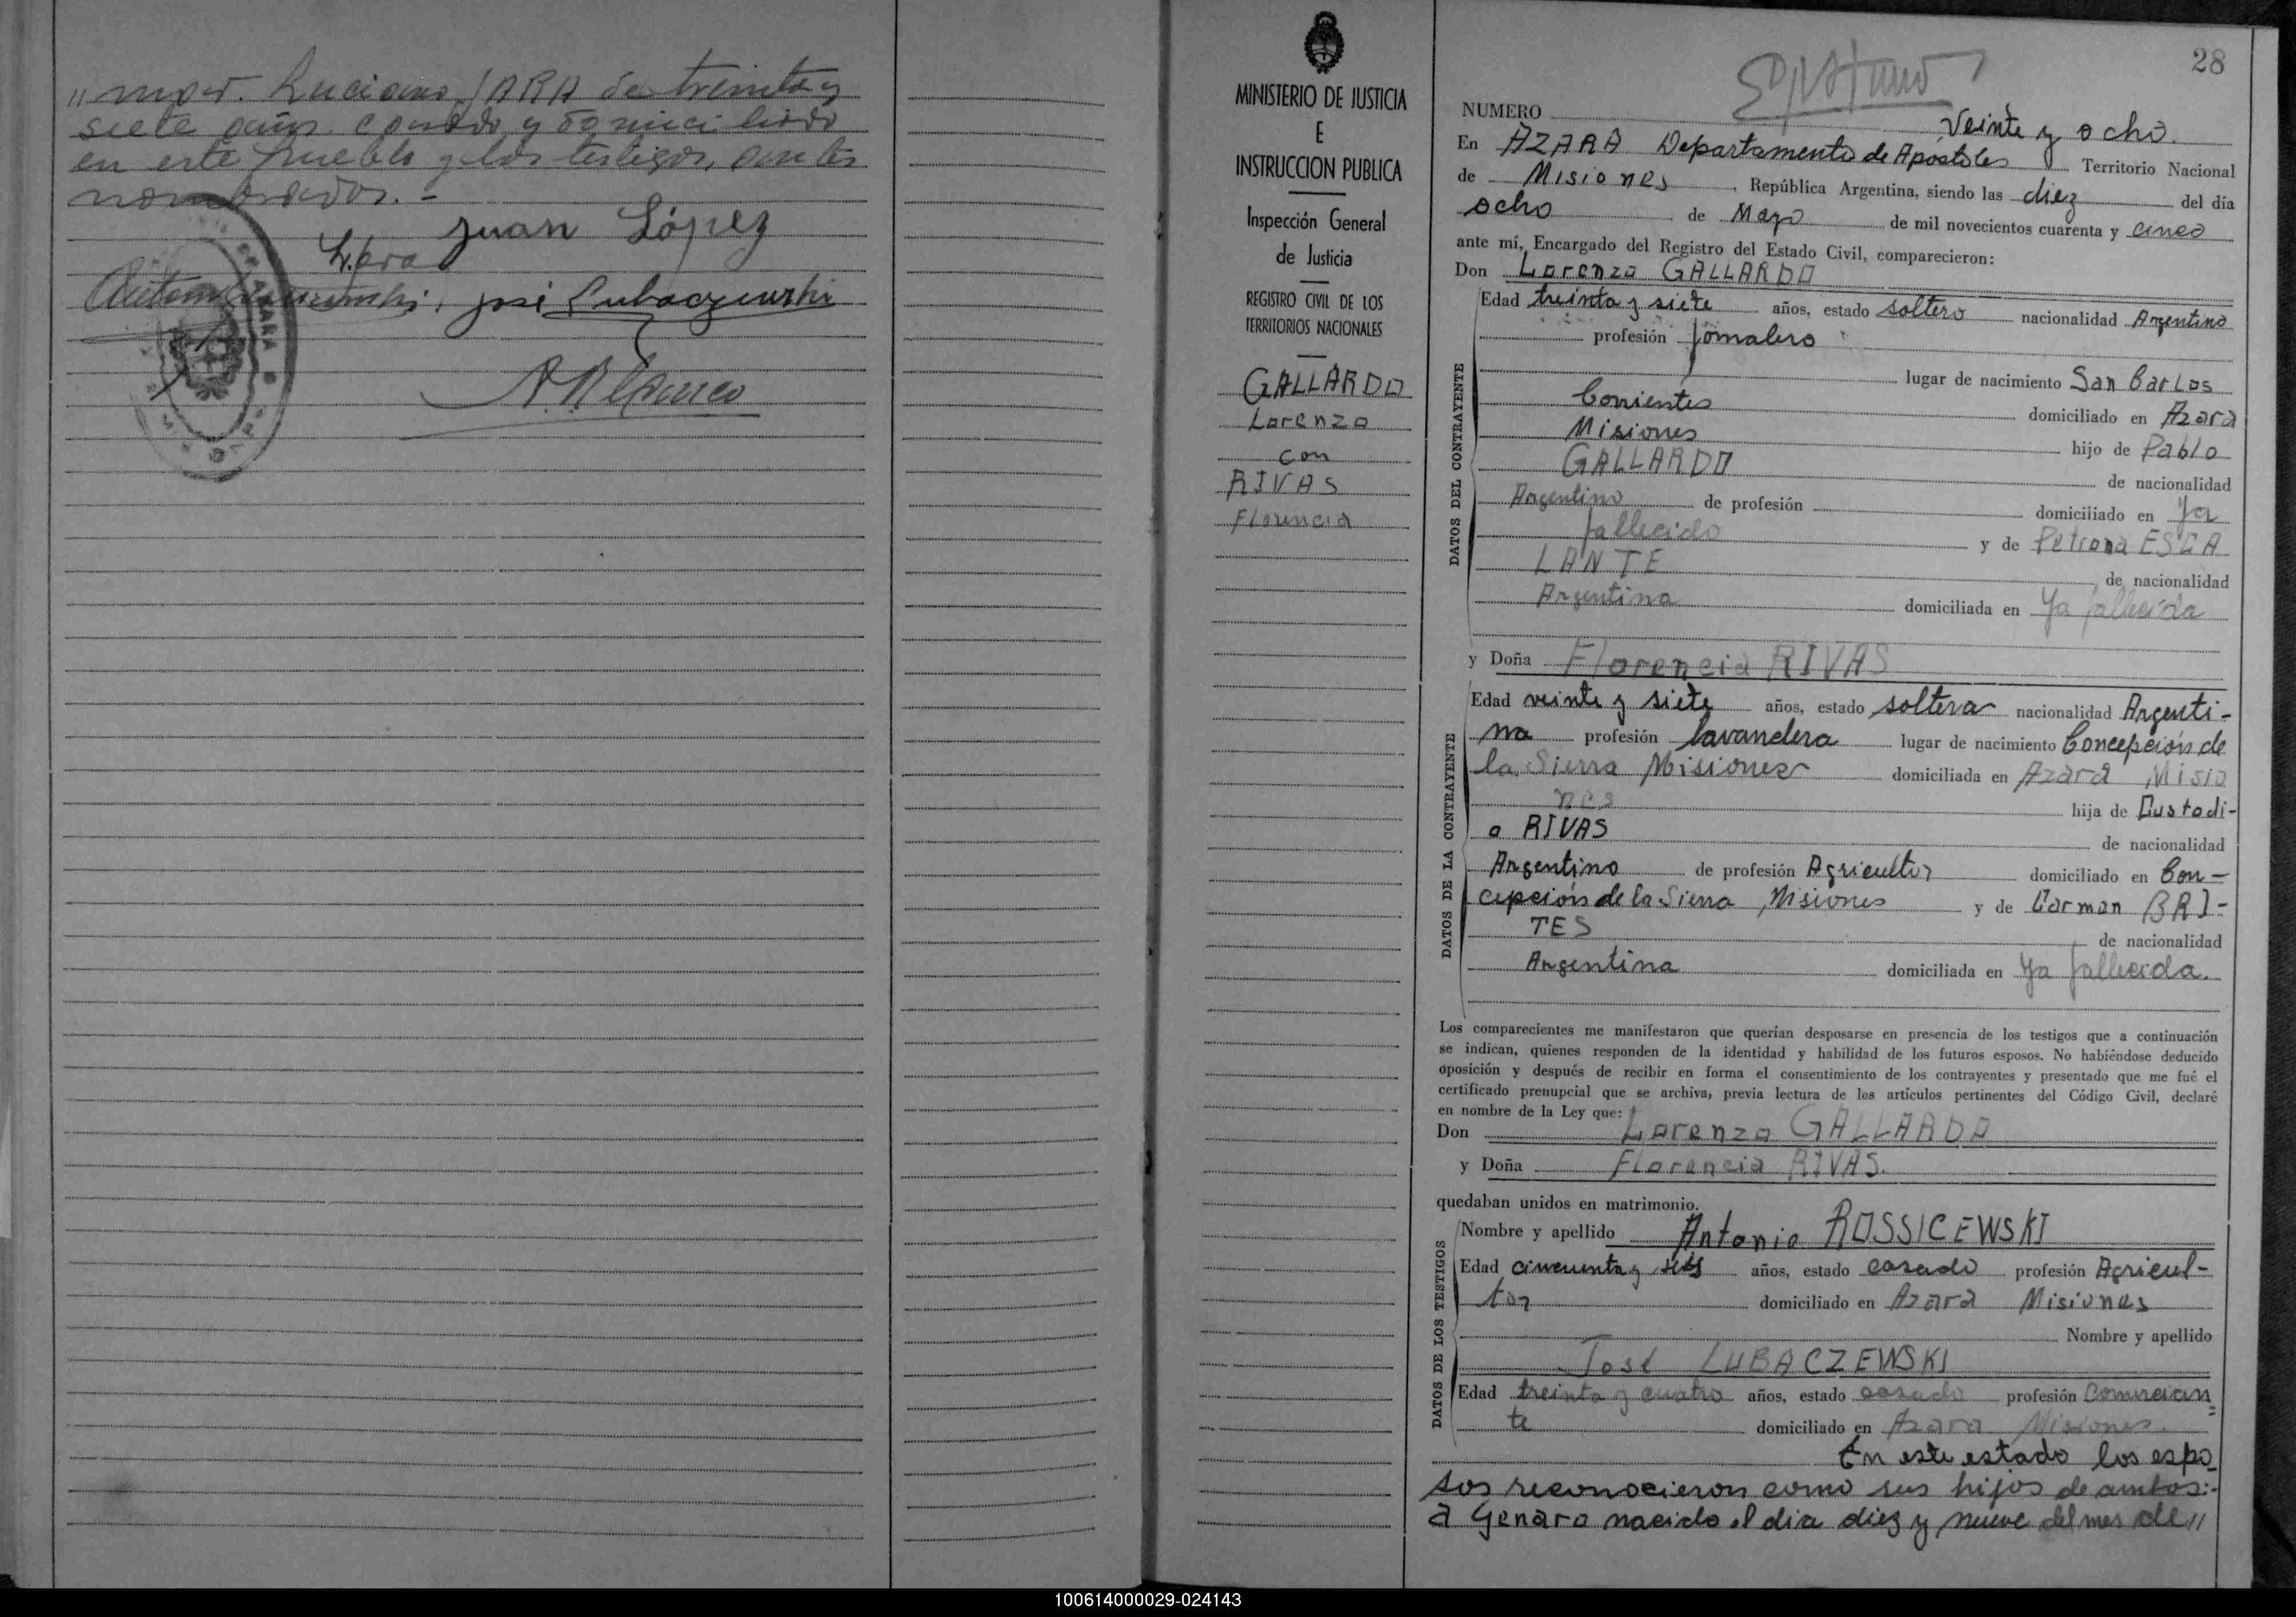 " mpo. Luciano JARA de treinta y
siete años. casado y domiciliado
en este pueblo y los testigos, antes
nombrados. -
Juan López
L. Jara
José Lubaczewski
A. Blanco
MINISTERIO DE JUSTICIA
E
INSTRUCCION PUBLICA
Inspección General
de Justicia
REGISTRO CIVIL DE LOS
TERRITORIOS NACIONALES
GALLARDO
Lorenzo
con
RIVAS
Florencia
28
NUMERO Veinte y ocho.
En AZARA Departamento de Apóstoles Territorio Nacional
de Misiones, República Argentina, siendo las diez del día
ocho de Mayo de mil novecientos cuarenta y cinco
ante mí, Encargado del Registro del Estado Civil, comparecieron:
Don Lorenzo GALLARDO
DATOS DEL CONTRAYENTE
Edad treinta y siete años, estado soltero nacionalidad Argentino
profesión Jornalero
lugar de nacimiento San Carlos
Corrientes domiciliado en Azara
Misiones hijo de Pablo
GALLARDO de nacionalidad
Argentino de profesión domiciliado en Ya
fallecido y de Petrona ESCA
LANTE de nacionalidad
Argentina domiciliada en Ya fallecida
y Doña Florencia RIVAS
DATOS DE LA CONTRAYENTE
Edad veinte y siete años, estado soltera nacionalidad Argenti-
na profesión lavandera lugar de nacimiento Concepción de
la Sierra Misiones domiciliada en Azara Misio
nes hija de Custodi-
o RIVAS de nacionalidad
Argentino de profesión Agricultor domiciliado en Con-
cepción de la Sierra, Misiones y de Carman BRI-
TES de nacionalidad
Argentina domiciliada en Ya fallecida.
Los comparecientes me manifestaron que querían desposarse en presencia de los testigos que a continuación
se indican, quienes responden de la identidad y habilidad de los futuros esposos. No habiéndose deducido
oposición y después de recibir en forma el consentimiento de los contrayentes y presentado que me fué el
certificado prenupcial que se archiva, previa lectura de los artículos pertinentes del Código Civil, declaré
en nombre de la Ley que:
Don Lorenzo GALLARDO
y Doña Florencia RIVAS.
quedaban unidos en matrimonio.
DATOS DE LOS TESTIGOS
Nombre y apellido Antonio ROSSICEWSKI
Edad cincuenta y seis años, estado casado profesión Agricul-
tor domiciliado en Azara Misiones
Nombre y apellido
José LUBACZEWSKI
Edad treinta y cuatro años, estado casado profesión Comercian
te domiciliado en Azara Misiones.
En este estado los espo
sos reconocieron como sus hijos de ambos:-
a Genaro nacido el dia diez y nueve del mes de "
100614000029-024143